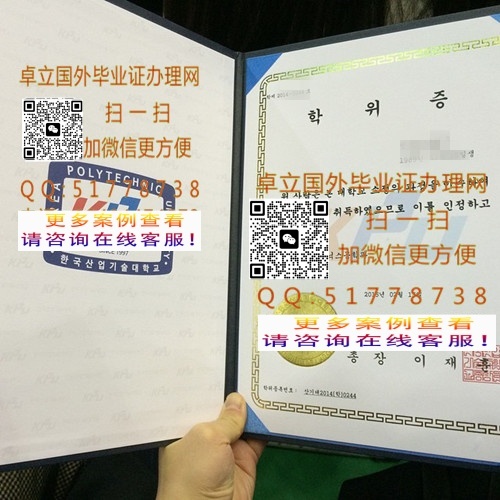 卓立国外毕业证办理网
扫一扫
加微信更方便
QQ:51778738
更多案例查看
请咨询在线客服!
POLYTECHNIC
한국산업기술대학교
학위증
卓立国外毕业证办理网
扫一扫
加微信更方便
QQ:51778738
更多案例查看
请咨询在线客服!
취득하였으므로 이를 인정하고
총장 이재훈
학위등록번호: 산기대2014(학)0044